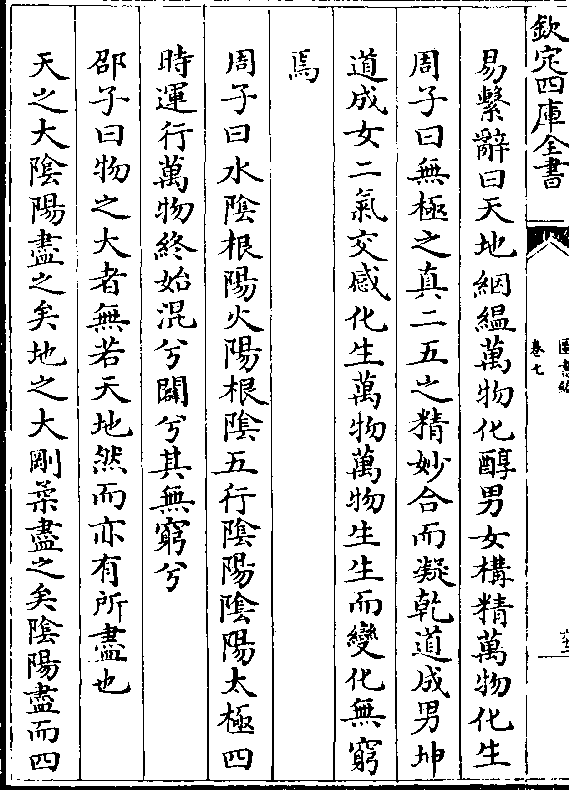 欽定四庫全書
圖書編
卷七
易繫辭曰天地絪緼萬物化醇男女構精萬物化生
周子曰無極之真二五之精妙合而凝乾道成男坤
道成女二氣交感化生萬物萬物生生而變化無窮
焉
周子曰水陰根陽火陽根陰五行陰陽陰陽太極四
時運行萬物終始混兮闢兮其無窮兮
邵子曰物之大者無若天地然而亦有所盡也
天之大陰陽盡之矣地之大剛柔盡之矣陰陽盡而四